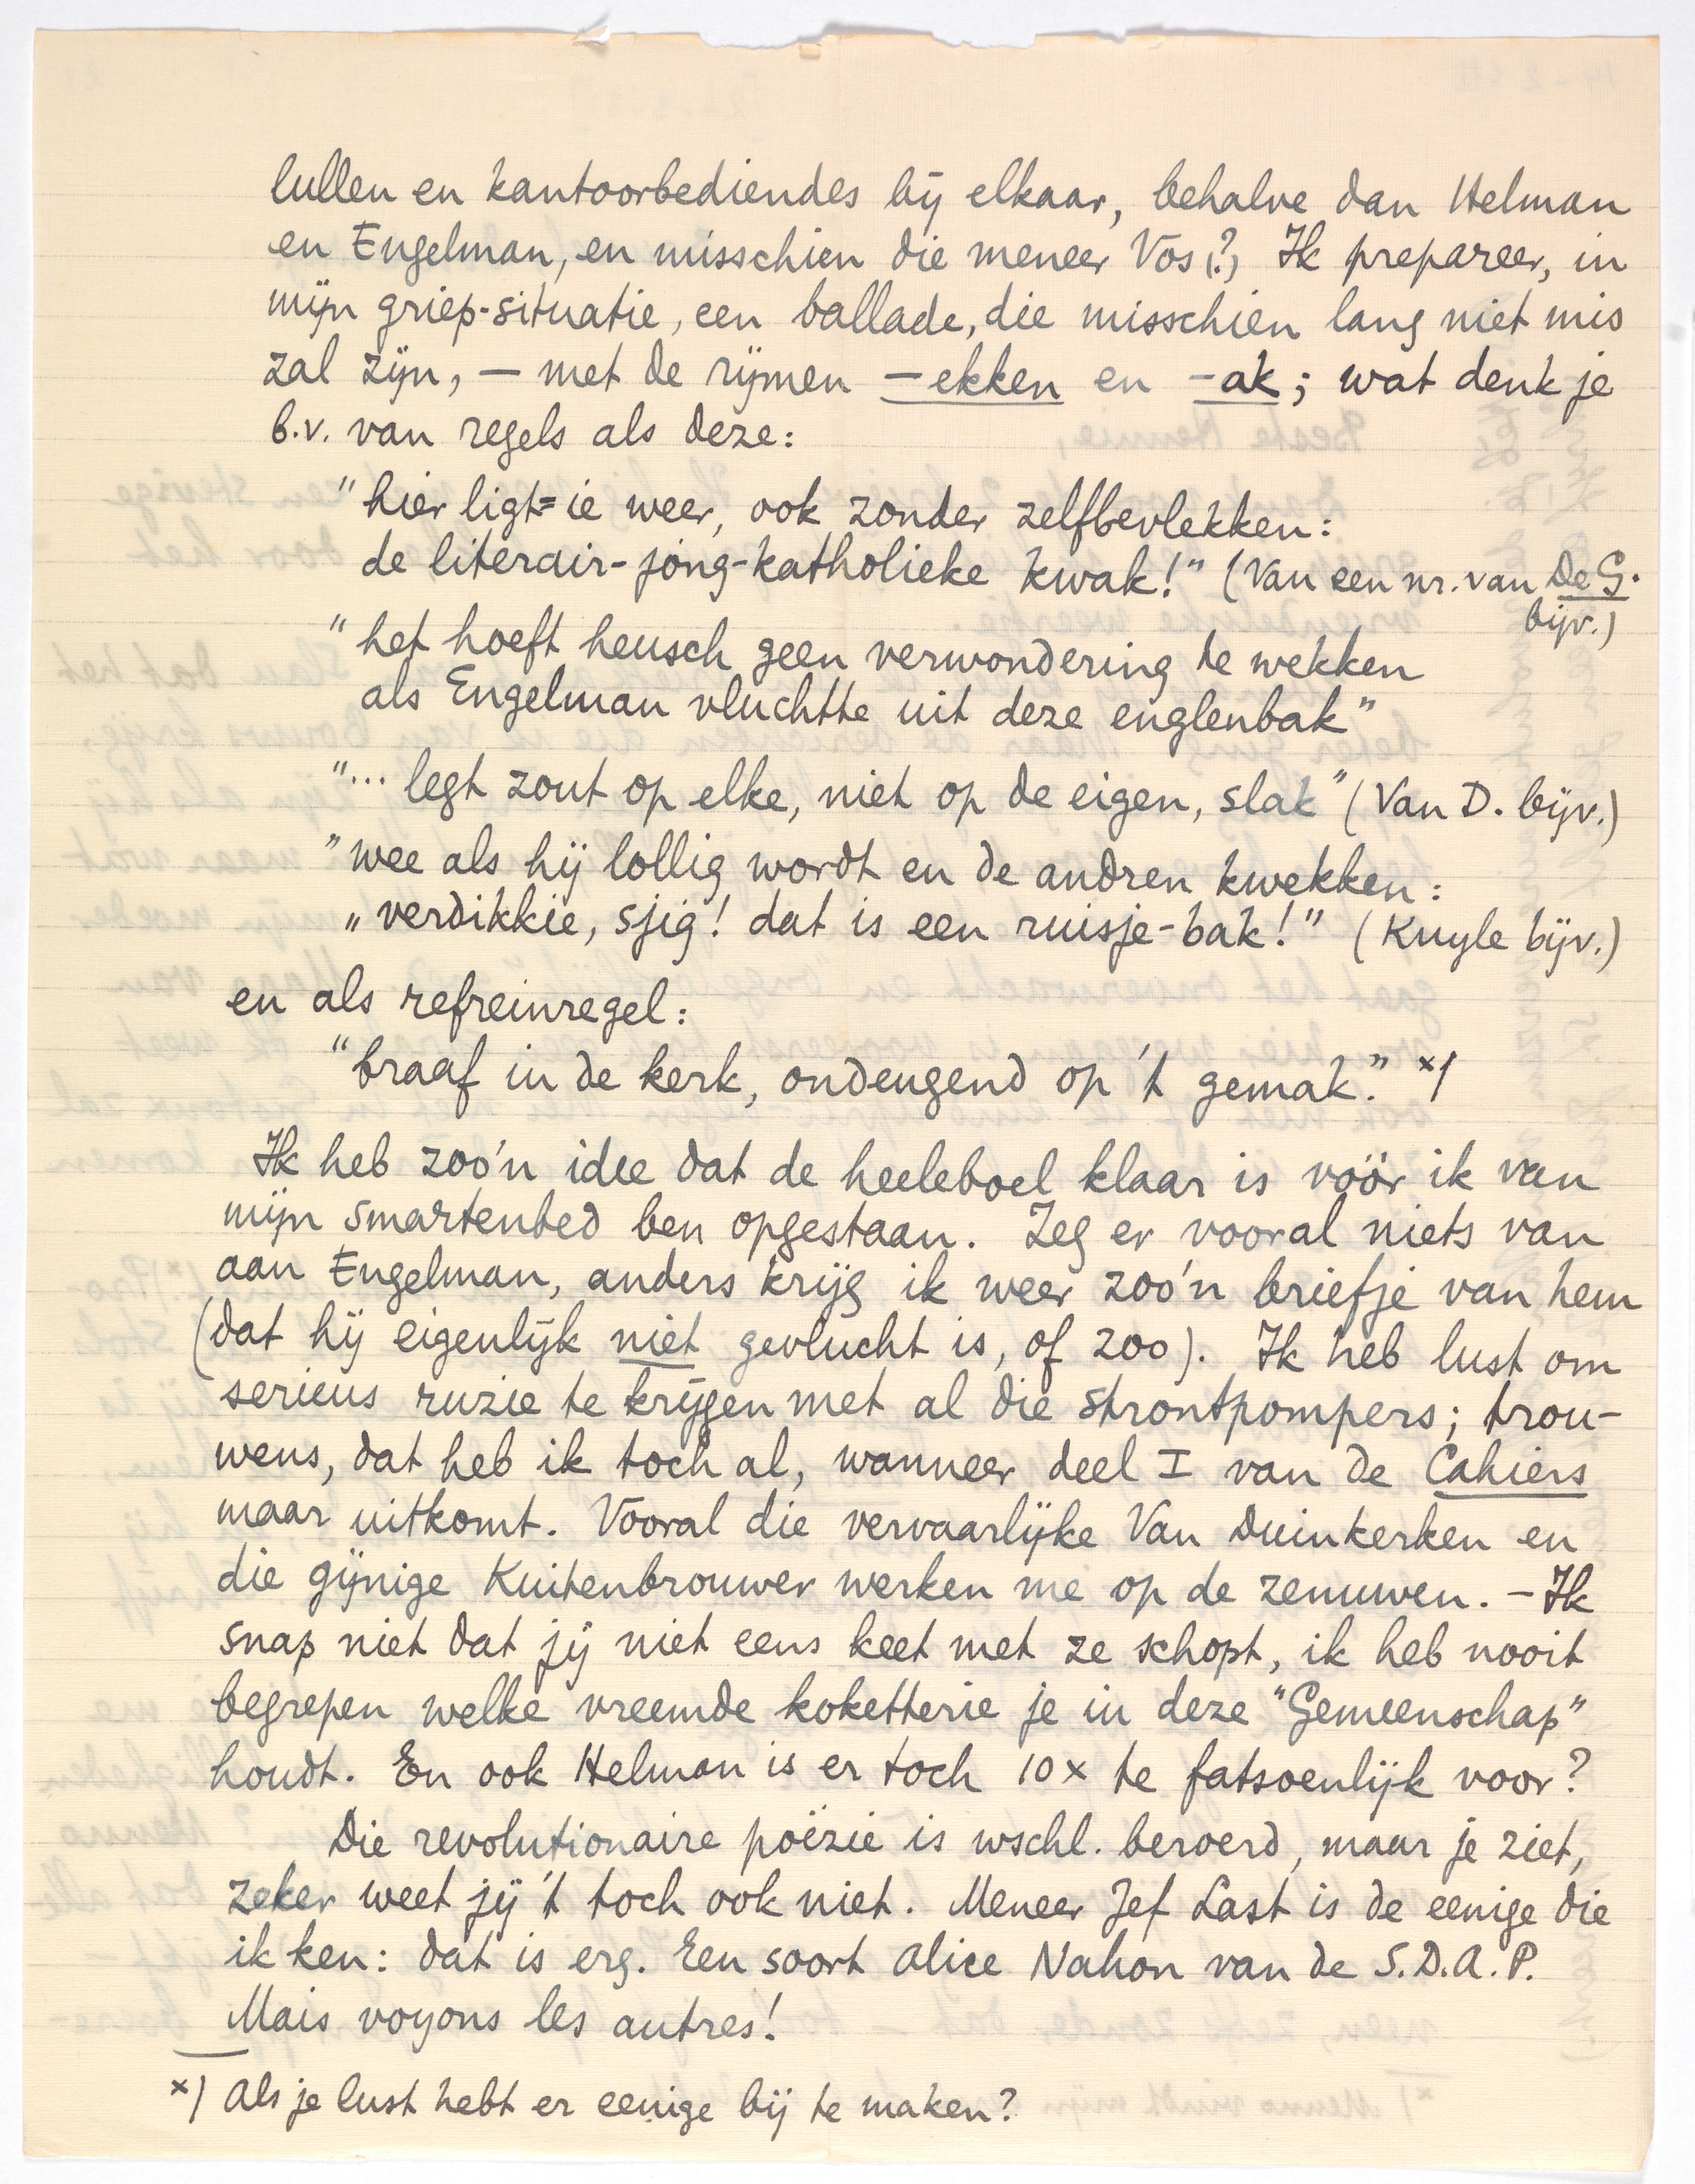 lullen en kantoorbediendes bij elkaar, behalve dan Helman
en Engelman, en misschien die meneer Vos (?) Ik prepareer, in
mijn griep-situatie, een ballade, die misschien lang niet mis
zal zijn, — met de rijmen —ekken en -ak; wat denk je
b.v. van regels als deze:
"hier ligt=ie weer, ook zonder zelfbevlekken:
de literair-jong-katholieke kwak!" (Van een nr. van De G.
bijv.)
"het hoeft heusch geen verwondering te wekken
als Engelman vluchtte uit deze englenbak"
"... legt zout op elke, niet op de eigen, slak" (Van D. bijv.)
"wee als hij lollig wordt en de andren kwekken:
„verdikkie, sjig! dat is een ruisje-bak!" (Kuyle bijv.)
en als refreinregel:
"braaf in de kerk, ondeugend op 't gemak." ×)
Ik heb zoo'n idee dat de heeleboel klaar is vóór ik van
mijn smartenbed ben opgestaan. Zeg er vooral niets van
aan Engelman, anders krijg ik weer zoo'n briefje van hem
(dat hij eigenlijk niet gevlucht is, of zoo). Ik heb lust om
serieus ruzie te krijgen met al die strontpompers; trou-
wens, dat heb ik toch al, wanneer deel I van de Cahiers
maar uitkomt. Vooral die vervaarlijke Van Duinkerken en
die gijnige Kuitenbrouwer werken me op de zenuwen. — Ik
snap niet dat jij niet eens keet met ze schopt, ik heb nooit
begrepen welke vreemde koketterie je in deze "Gemeenschap"
houdt. En ook Helman is er toch 10× te fatsoenlijk voor?
Die revolutionaire poëzie is wschl. beroerd, maar je ziet,
zeker weet jij 't toch ook niet. Meneer Jef Last is de eenige die
ik ken: dat is erg. Een soort Alice Nahon van de S.D.A.P.
Mais voyons les autres!
×) Als je lust hebt er eenige bij te maken?